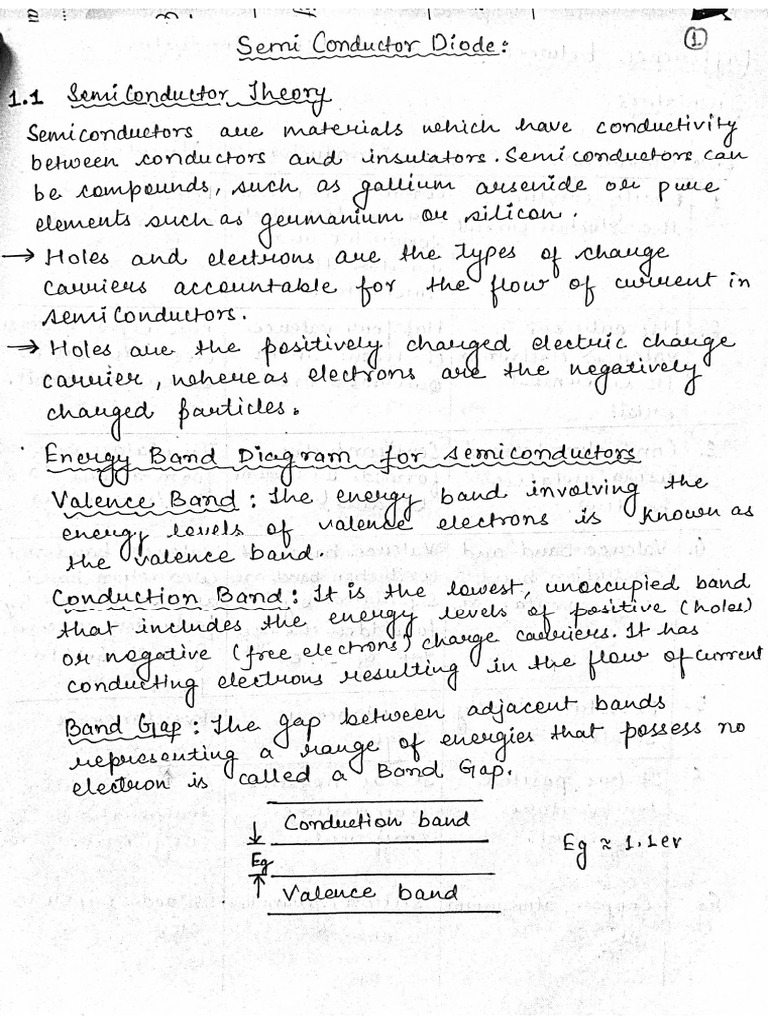 Semi Conductor Diode:
1
1.1 Semi Conductor Theory
Semiconductors are materials which have conductivity
between conductors and insulators. Semiconductors can
be compounds, such as gallium arsenide or pure
elements such as germanium or silicon.
→ Holes and electrons are the types of charge
carriers accountable for the flow of current in
semiConductors.
→ Holes are the positively charged electric charge
carrier, whereas electrons are the negatively
charged particles.
Energy Band Diagram for semiconductors
Valence Band: The energy band involving the
energy levels of valence electrons is known as
the valence band.
Conduction Band: It is the lowest, unoccupied band
that includes the energy levels of positive (holes)
or negative (free electrons) charge carriers. It has
conducting electrons resulting in the flow of current
Band Gap: The gap between adjacent bands
representing a range of energies that possess no
electron is called a Band Gap.
Conduction band
Eg
Eg ≈ 1.1ev
Valence band